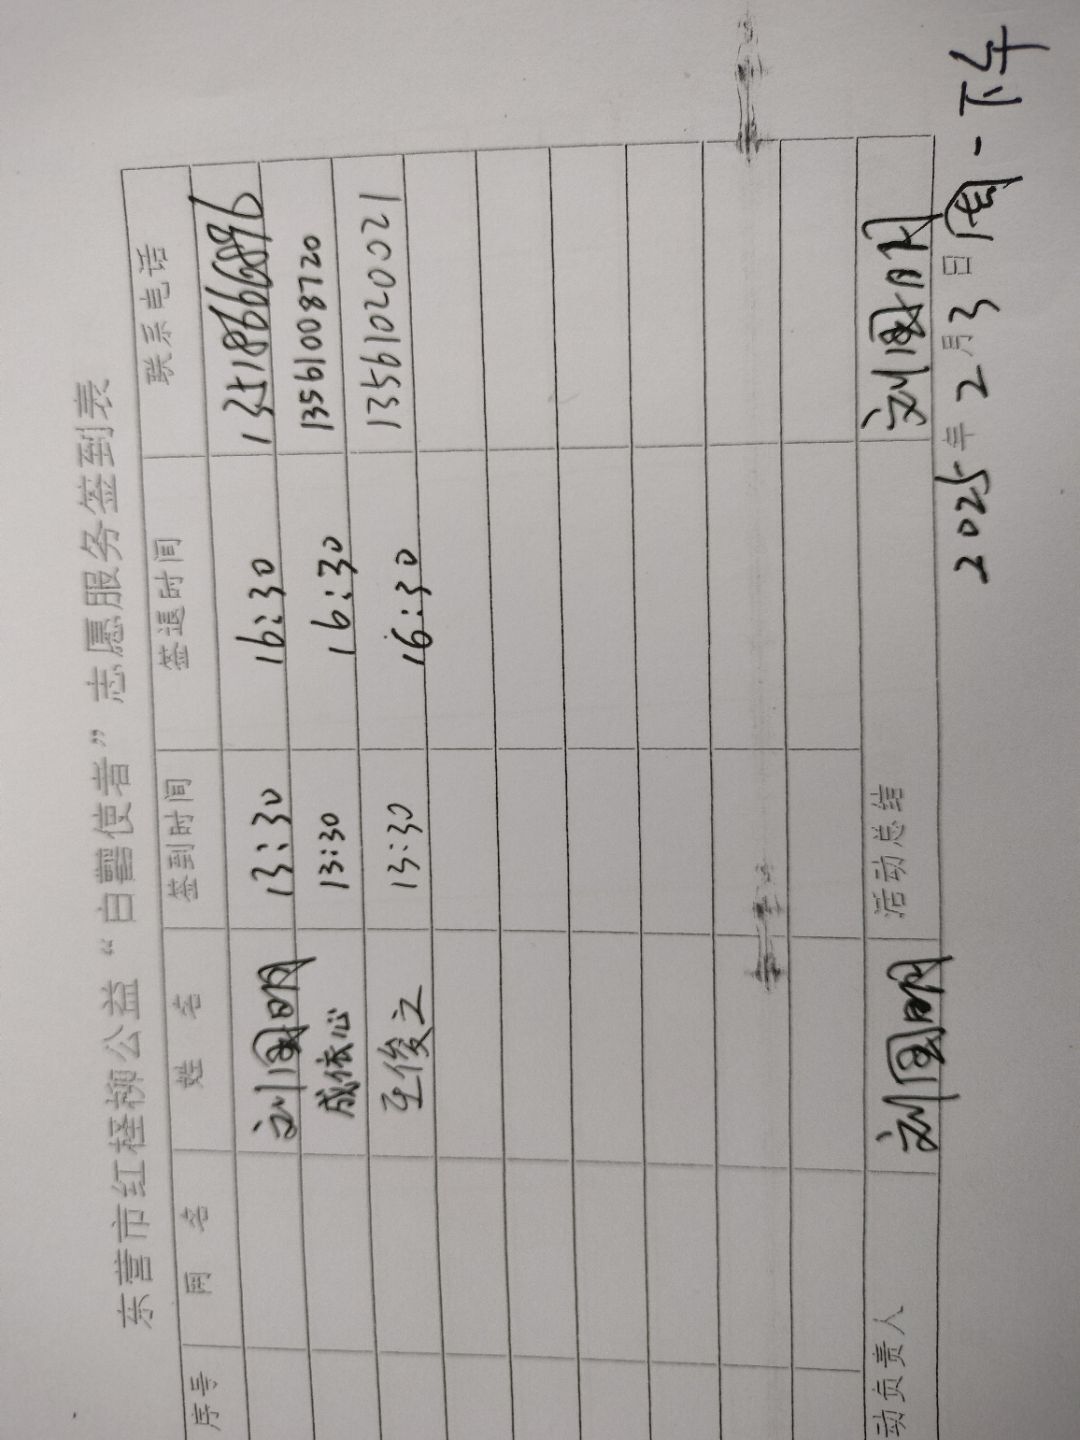 东营市红柽柳公益“白鹭使者”志愿服务签到表
序号 网 名 姓 名 签到时间 签退时间 联系电话
刘国明 13:30 16:30 13518666896
成依心 13:30 16:30 13561008720
王俊之 13:30 16:30 13561020021
动负责人 刘国明 活动总结 刘国明
2025年2月3日(周一下午